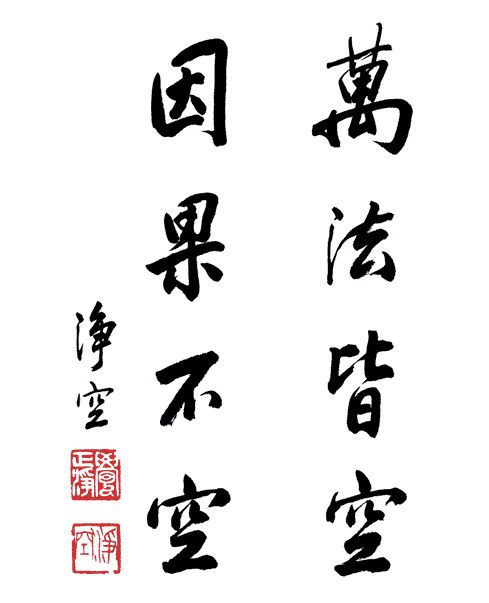 萬法皆空
因果不空
淨空
覺正淨
淨空